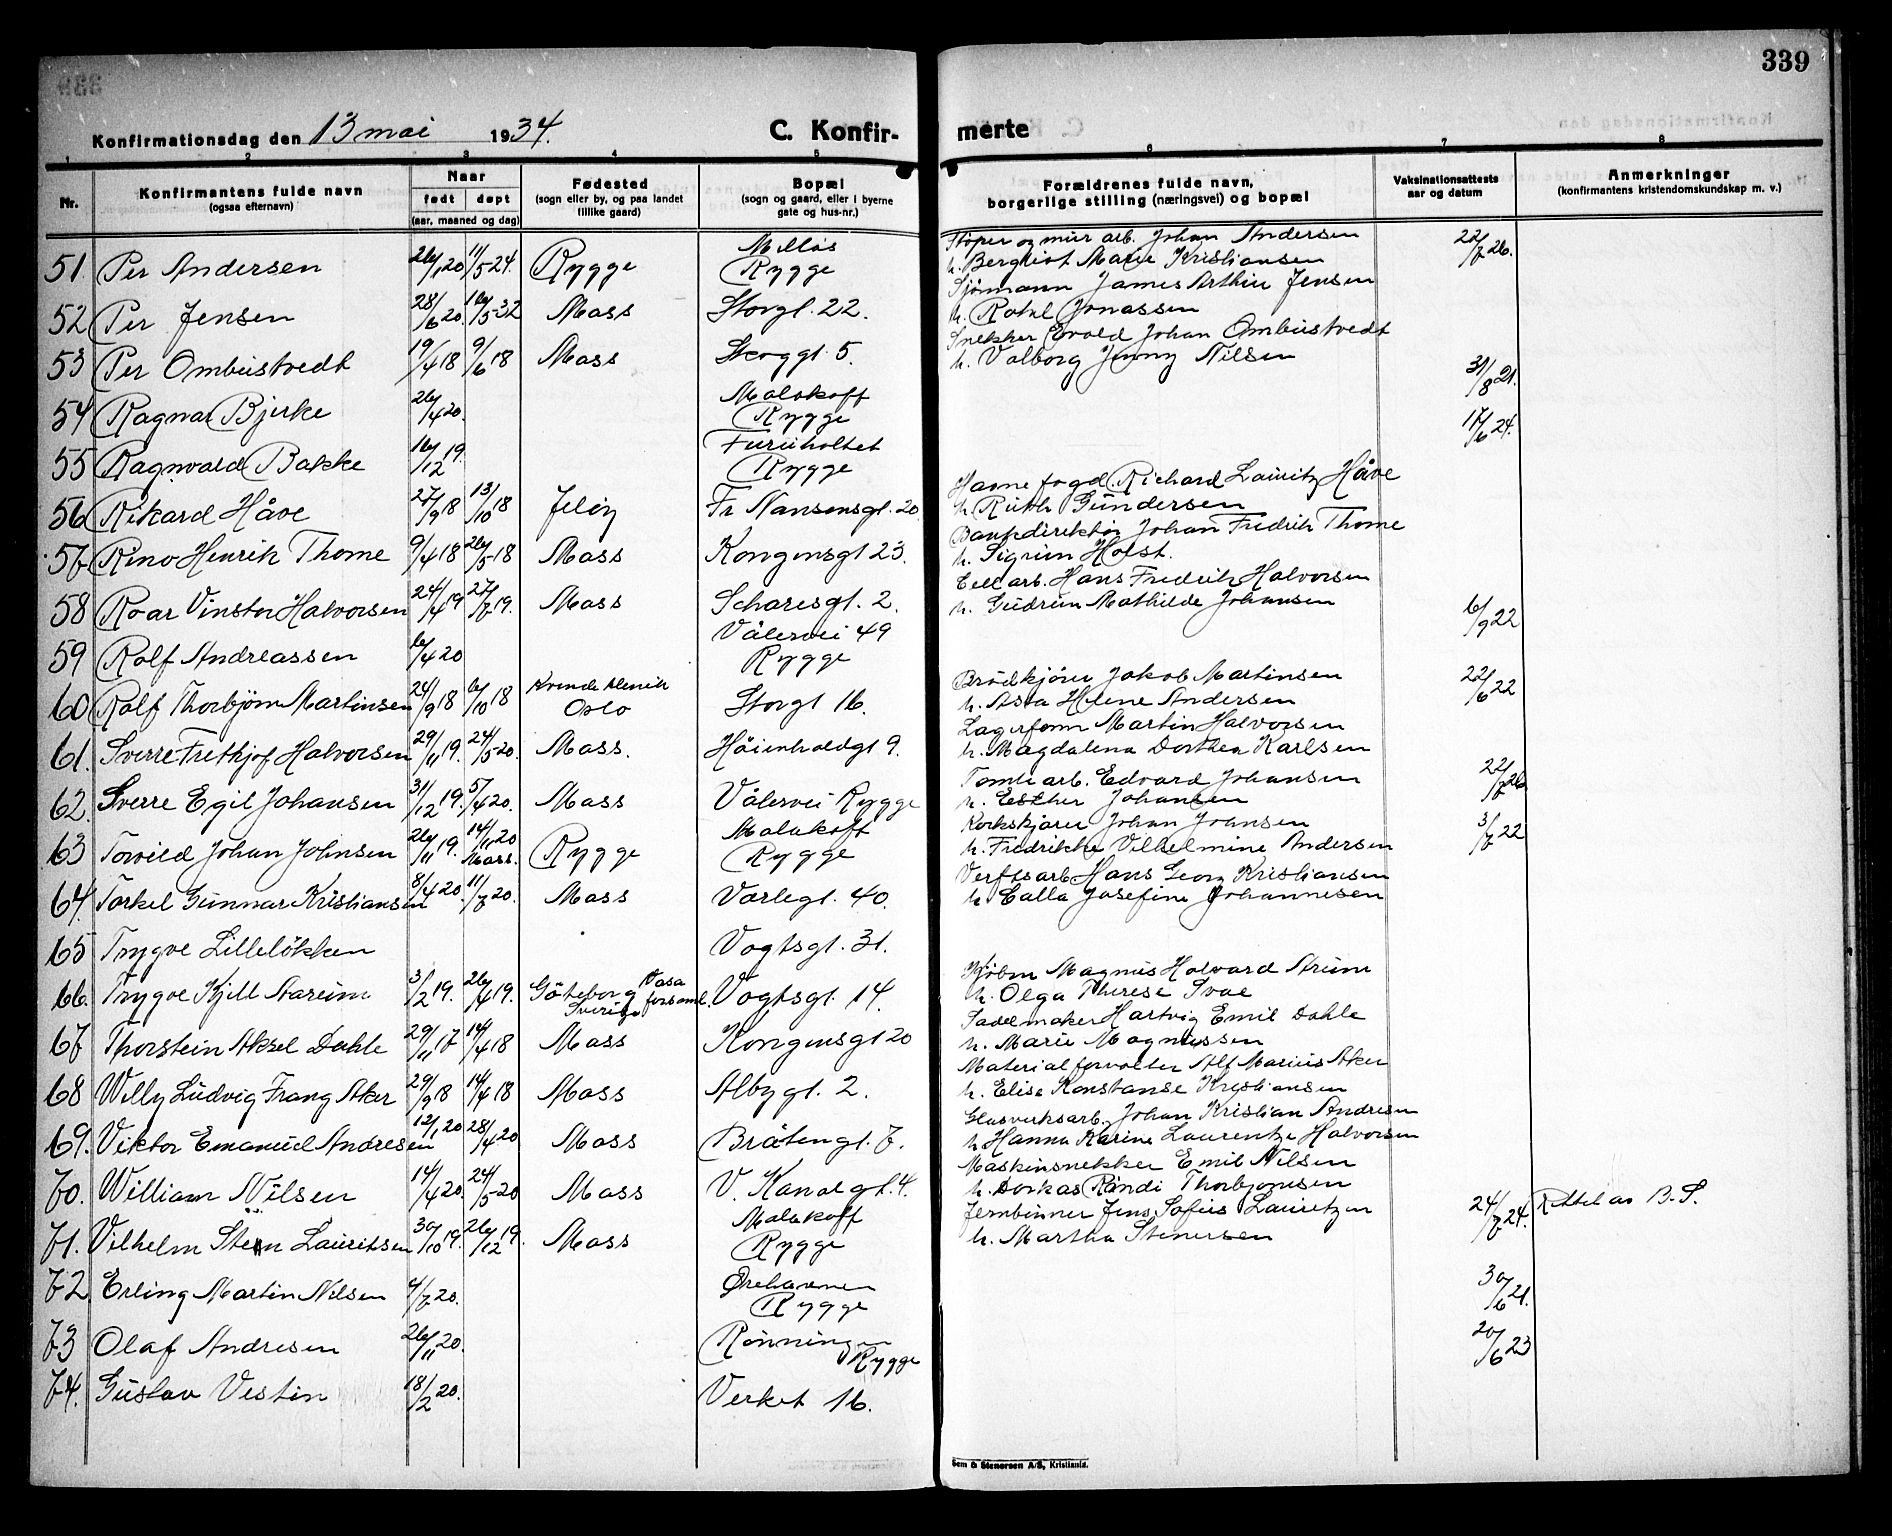 339
Konfirmationsdag den 13 mai 1934.
C. Konfir-
merte
1 2 3 4 5 6 7 8
Nr.
Konfirmantens fulde navn
(ogsaa efternavn)
Naar
født døpt
(aar, maaned og dag)
Fødested
(sogn eller by, og paa landet
tillike gaard)
Bopæl
(sogn og gaard, eller i byerne
gate og hus-nr.)
Forældrenes fulde navn,
borgerlige stilling (næringsvei) og bopæl
Vaksinationsattests
aar og datum
Anmerkninger
(konfirmantens kristendomskundskap m. v.)
51. Per Andersen 26/1 20 11/5-24. Rygge Melløs Rygge
Støper og mur arb. Johan Andersen 22/7 26.
h. Bergliot Marie Kristiansen
52 Per Jensen 28/6 20. 16/5-32 Moss Storgt. 22.
Sjømann James Arthur Jensen
h. Rakel Jonassen
53 Per Ombustvedt 19/4 18 9/6 18 Moss Skoggt. 5.
Snekker Evald Johan Ombustvedt
h. Valborg Jenny Nilsen
54 Ragnar Bjerke 26/4 20. Malakoff Rygge 31/8 21.
55 Ragnvald Bakke 16/12 19. Furuholtet Rygge 17/6 24.
56 Rikard Håve 27/9 18 13/10 18 Jeløy Fr Nansensgt. 20
Havne fogd Richard Lauritz Håve
h. Ruth Gundersen
57 Rino Henrik Thome 9/4 18 26/5-18 Moss Kongensgt 23.
Bankdirektør Johan Fredrik Thome
h. Sigrun Holst.
58 Roar Vinstor Halvorsen 24/4 19 27/7 19. Moss Scharesgt. 2.
Cell arb. Hans Fredrik Halvorsen
h. Gudrun Mathilde Johansen
59 Rolf Andreassen 16/4 20 Vålervei 49 Rygge 6/9 22
60 Rolf Thorbjørn Martinsen 24/9 18 6/10 18 Oslo Storgt 16.
Brødkjører Jakob Martinsen 22/6 22
h. Asta Helene Andersen
61. Sverre Fritkjof Halvorsen 29/11 19. 24/5-20. Moss. Høienholdgt 9.
Lagerform Martin Halvorsen
h. Magdalena Dorthea Karlsen
62. Sverre Egil Johansen 31/12 19. 5/4 20. Moss Vålervei Rygge
Tomte arb. Edvard Johansen 22/7 26
h. Esther Johansen
63 Torvild Johan Johnsen 26/11 19. 14/11 20 Moss. Rygge Malakoff Rygge
Korkskjærer Johan Johnsen 3/7 22
h. Fredrikke Vilhelmine Andersen
64. Torkel Gunnar Kristiansen 8/4 20. 11/7 20. Moss Varlegt. 40.
Verftsarb Hans Georg Kristiansen
h Calla Josefine Johannesen
65 Trygve Lilleløkken Vogtsgt. 31.
66. Trygve Kjell Aareim 3/2 19. 26/4 19. Göteborg Vasa forsaml. Sverige Vogtsgt. 14.
Kjøbm Magnus Halvard
h. Olga Therese Svae
67 Thorstein Aksel Dahle 29/11 17 14/4 18 Moss Kongensgt 20
Sadelmaker Hartvig Emil Dahle
h. Marie Magnussen
68 Willy Ludvig Frang Aker 29/9 18 14/4 18 Moss Albygt. 2.
Materialforvalter Alf Marius Aker
h. Elise Konstanse Kristiansen
69. Viktor Emanuel Andresen 12/1 20 28/4 20 Moss Bråtengt. 7.
Glasverksarb. Johan Kristian Andresen
h Hanna Karine Laurentze Halvorsen
70. William Nilsen 14/4 20. 24/5-20 Moss V. Kanalgt. 4.
Maskinsnekker Emil Nilsen
h. Dorkas Randi Thorbjørnsen
71. Vilhelm Sten Lauritsen 30/10 19. 26/12 19. Moss Malakoff Rygge
Jernbinner Jens Sofus Lauritzen 24/7 24. Rettet av B. S.
h. Martha Stenersen
72. Erling Martin Nilsen 4/7 20. Ørehavnen Rygge 30/6 21.
73 Olaf Andresen 26/11 20. Rønningen Rygge 20/6 23
74. Gustav Vestin 18/2 20. Verket 16.
Sem & Stenersen A/S, Kristiania.